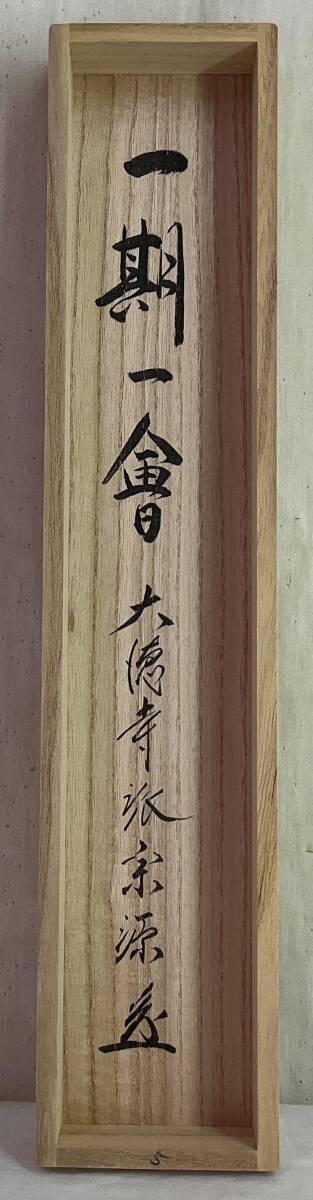 一期一會 大徳寺派宗源書
5